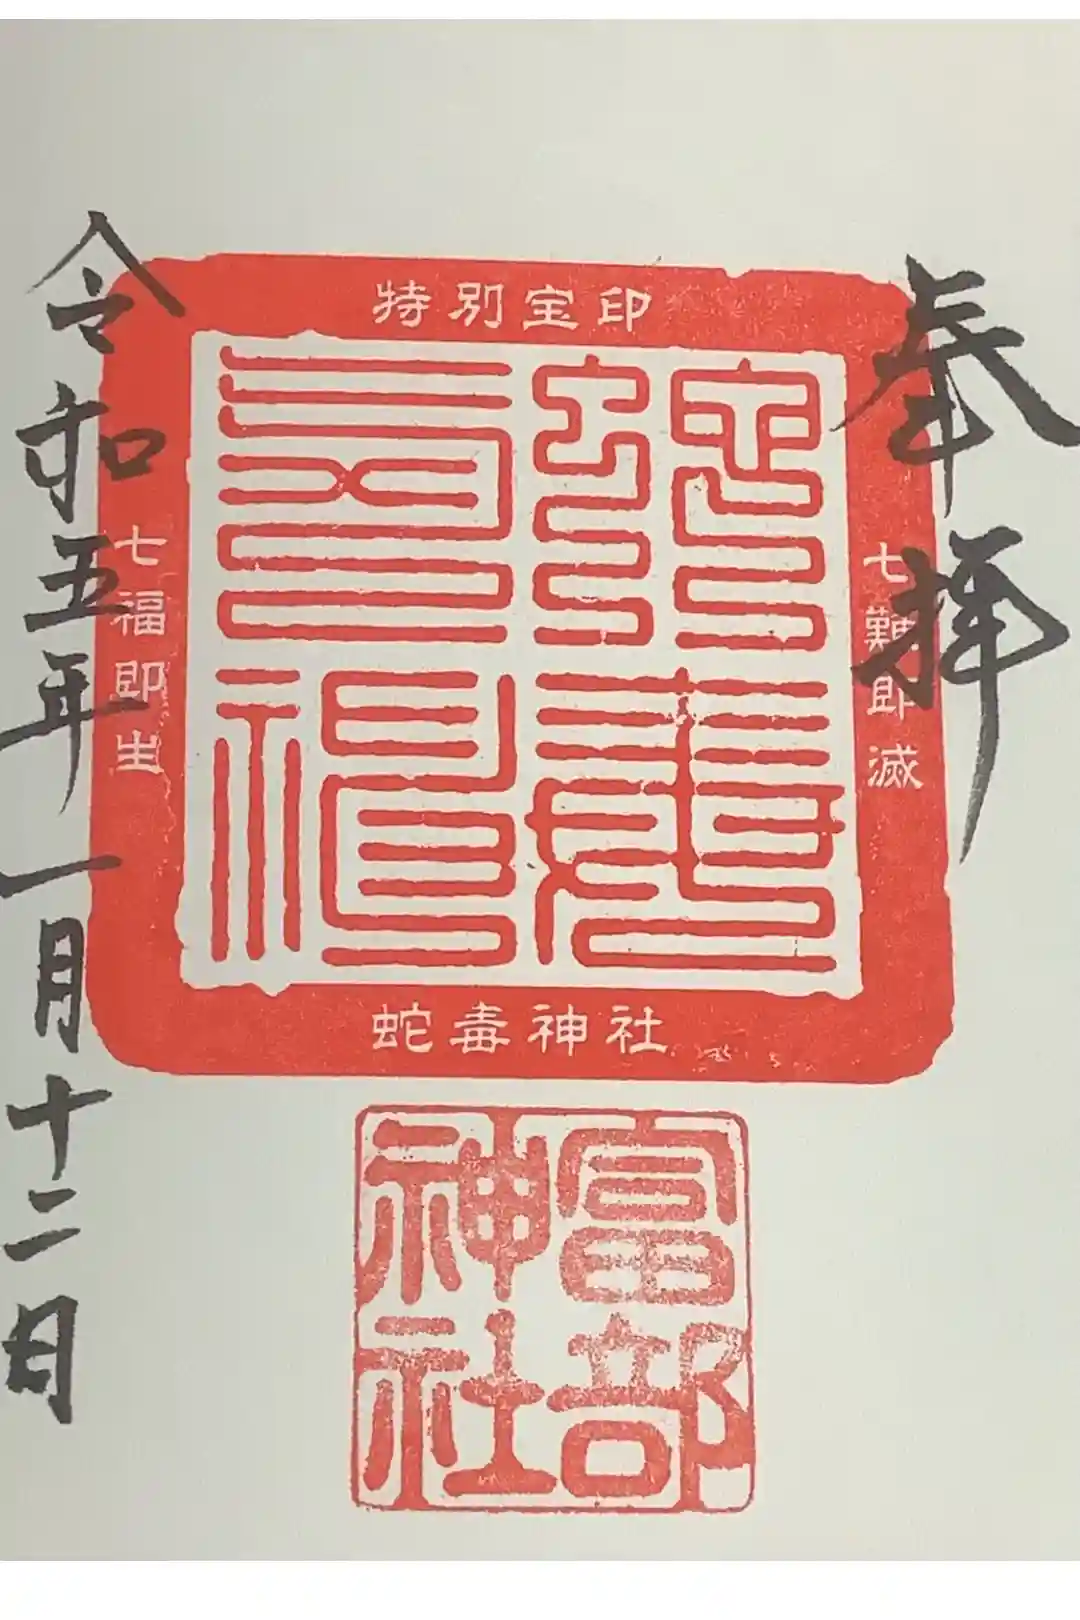 奉拝
特別宝印
七難即滅
七福即生
蛇毒神社
富部
神社
令和五年一月十二日